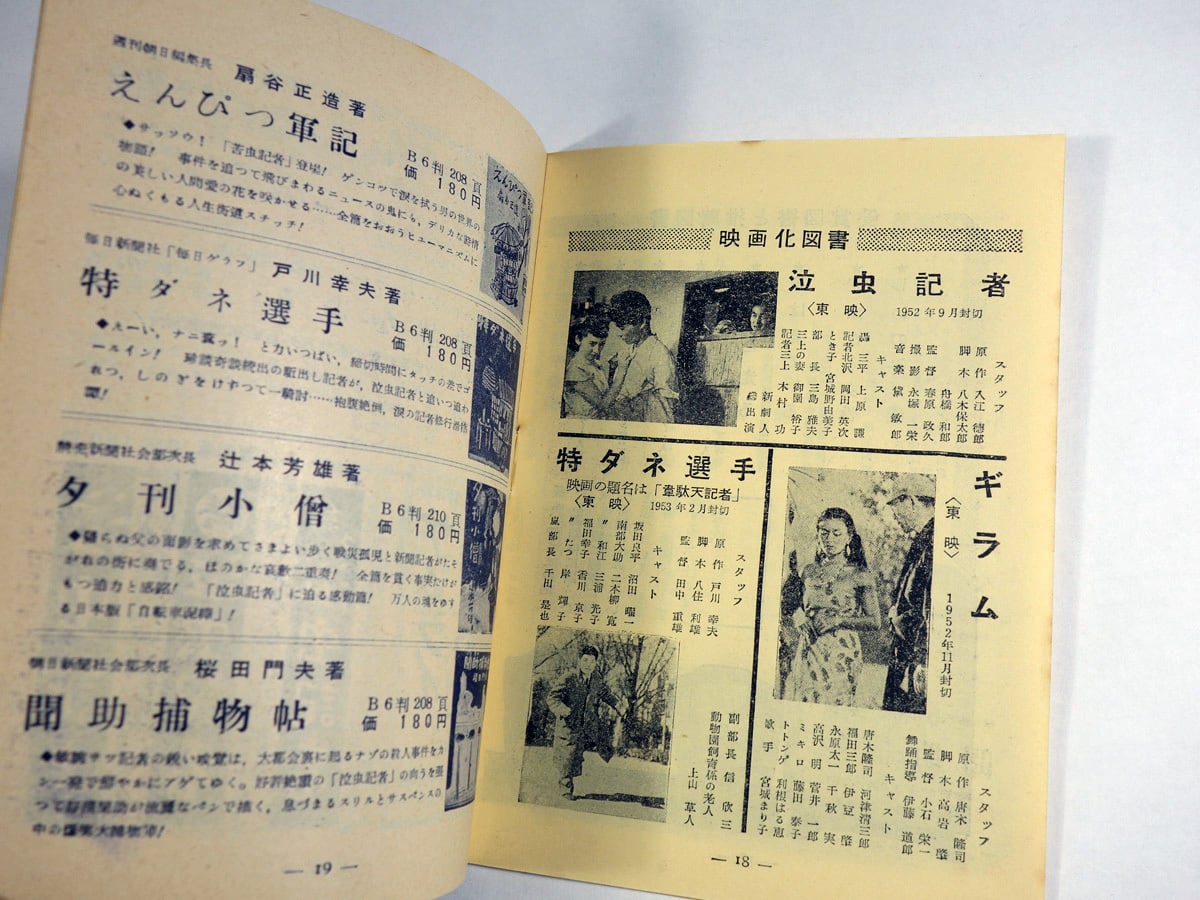 映画化図書
泣虫記者
〈東映〉 1952年9月封切
スタッフ
原作 入江徳郎
脚本 八木保太郎
舟橋和郎
監督 春原政久
撮影 永塚一栄
音楽 黛敏郎
キャスト
轟三平 上原謙
記者北沢 岡田英次
とき子 宮城野由美子
部長 三島雅夫
三上の妻 御園裕子
記者三上 木村功
新劇人
総出演
特ダネ選手
映画の題名は「韋駄天記者」
〈東映〉 1953年2月封切
スタッフ
原作 戸川幸夫
脚本 八住利雄
監督 田中重雄
キャスト
坂田良平 沼田曜一
南部大助 二本柳寛
福田和江 三浦光子
〃 幸子 香川京子
〃 たつ 岸輝子
嵐部長 千田是也
副部長 信欣三
動物園飼育係の老人
上山草人
ギラム
〈東映〉
1952年11月封切
スタッフ
原作 唐木隆司
脚本 高岩肇
監督 小石栄一
舞踊指導 伊藤道郎
キャスト
唐木隆司 河津清三郎
福田三郎 伊豆肇
永原太一 千秋実
高沢明 菅井一郎
ミキロ 藤田泰子
トトンゲ 利根はる恵
歌手 宮城まり子
— 18 —
週刊朝日編集長 扇谷正造著
えんぴつ軍記
B6判 208頁
価 180円
◆サッソウ! 「苦虫記者」登場! ゲンコツで涙を拭う男の世界の
物語! 事件を追つて飛びまわるニュースの鬼にも、デリカな路傍
の美しい人間愛の花を咲かせる……全篇をおおうヒューマニズムに
心ぬくもる人生街道スチッチ!
毎日新聞社「毎日グラフ」 戸川幸夫著
特ダネ選手
B6判 208頁
価 180円
◆えーい、ナニ糞ッ! と力いつぱい、締切時間にタッチの差でゴ
ールイン! 珍談奇談続出の駈出し記者が、泣虫記者と追いつ追わ
れつ、しのぎをけずつて一騎討……抱腹絶倒、涙の記者修行滑稽
譚!
新聞社会部次長 辻本芳雄著
夕刊小僧
B6判 210頁
価 180円
◆還らぬ父の面影を求めてさまよい歩く戦災孤児と新聞記者がたそ
がれの街に奏でる、ほのかな哀歓二重奏! 全篇を貫く事実だけが
もつ迫力と感銘! 「泣虫記者」に迫る感動篇! 万人の魂をゆす
る日本版「自転車泥棒」!
朝日新聞社会部次長 桜田門夫著
聞助捕物帖
B6判 208頁
価 180円
◆敏腕サツ記者の鋭い嗅覚は、大都会裏に起るナゾの殺人事件をカ
ン一発で鮮やかにアゲてゆく。好評絶讃の「泣虫記者」の向うを張
つて が流麗なペンで描く、息づまるスリルとサスペンスの
中の爆笑大捕物陣!
— 19 —